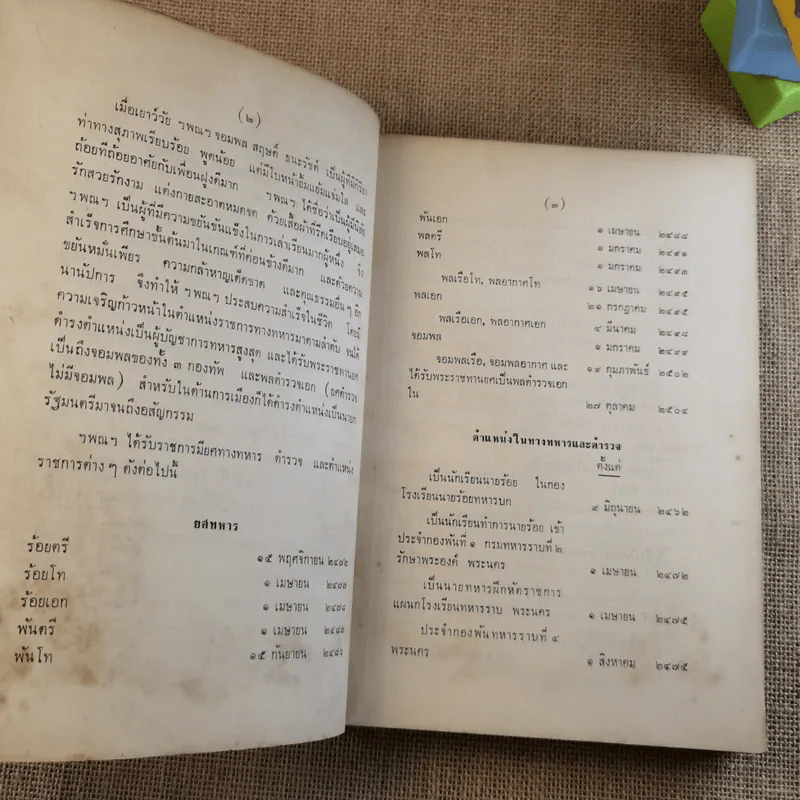 (๒)
เมื่อเยาว์วัย ฯพณฯ จอมพล สฤษดิ์ ธนะรัชต์ เป็นผู้ที่มีกิริยา
ท่าทางสุภาพเรียบร้อย พูดน้อย แต่มีใบหน้ายิ้มแย้มแจ่มใส และ
ถ้อยทีถ้อยอาศัยกับเพื่อนฝูงดีมาก ฯพณฯ ได้ชื่อว่าเป็นผู้มีนิสัย
รักสวยรักงาม แต่งกายสะอาดหมดจด ด้วยเสื้อผ้าที่รีดเรียบอยู่เสมอ
ฯพณฯ เป็นผู้ที่มีความขยันขันแข็งในการเล่าเรียนมากผู้หนึ่ง จึง
สำเร็จการศึกษาขั้นต้นมาในเกณฑ์ที่ค่อนข้างดีมาก และด้วยความ
ขยันหมั่นเพียร ความกล้าหาญเด็ดขาด และคุณธรรมอื่นๆ อีก
นานัปการ จึงทำให้ ฯพณฯ ประสบความสำเร็จในชีวิต โดยมี
ความเจริญก้าวหน้าในตำแหน่งราชการทางทหารมาตามลำดับ จนได้
ดำรงตำแหน่งเป็นผู้บัญชาการทหารสูงสุด และได้รับพระราชทานยศ
เป็นถึงจอมพลของทั้ง ๓ กองทัพ และพลตำรวจเอก (ยศตำรวจ
ไม่มีจอมพล) สำหรับในด้านการเมืองก็ได้ดำรงตำแหน่งเป็นนายก
รัฐมนตรีมาจนถึงอสัญกรรม
ฯพณฯ ได้รับราชการมียศทางทหาร ตำรวจ และตำแหน่ง
ราชการต่าง ๆ ดังต่อไปนี้
ยศทหาร
ร้อยตรี ๑๕ พฤศจิกายน
ร้อยโท ๑ เมษายน
ร้อยเอก ๑ เมษายน
พันตรี ๑ เมษายน
พันโท ๑๕ กันยายน
(๓)
พันเอก ๑ เมษายน ๒๔๘๘
พลตรี ๑ มกราคม ๒๔๙๑
พลโท ๑ มกราคม ๒๔๙๓
พลเรือโท, พลอากาศโท ๑๖ เมษายน ๒๔๙๕
พลเอก ๒๑ กรกฎาคม ๒๔๙๕
พลเรือเอก, พลอากาศเอก ๔ มีนาคม ๒๔๙๘
จอมพล ๑ มกราคม ๒๔๙๙
จอมพลเรือ, จอมพลอากาศ และ ๑๙ กุมภาพันธ์ ๒๕๐๒
ได้รับพระราชทานยศเป็นพลตำรวจเอก
ใน ๒๗ ตุลาคม ๒๕๐๔
ตำแหน่งในทางทหารและตำรวจ
ตั้งแต่
เป็นนักเรียนนายร้อย ในกอง
โรงเรียนนายร้อยทหารบก ๙ มิถุนายน ๒๔๖๒
เป็นนักเรียนทำการนายร้อย เข้า
ประจำกองพันที่ ๑ กรมทหารราบที่ ๒
รักษาพระองค์ พระนคร ๑ เมษายน ๒๔๗๒
เป็นนายทหารฝึกหัดราชการ
แผนกโรงเรียนทหารราบ พระนคร ๑ เมษายน ๒๔๗๕
ประจำกองพันทหารราบที่ ๔
พระนคร ๑ สิงหาคม ๒๔๗๕